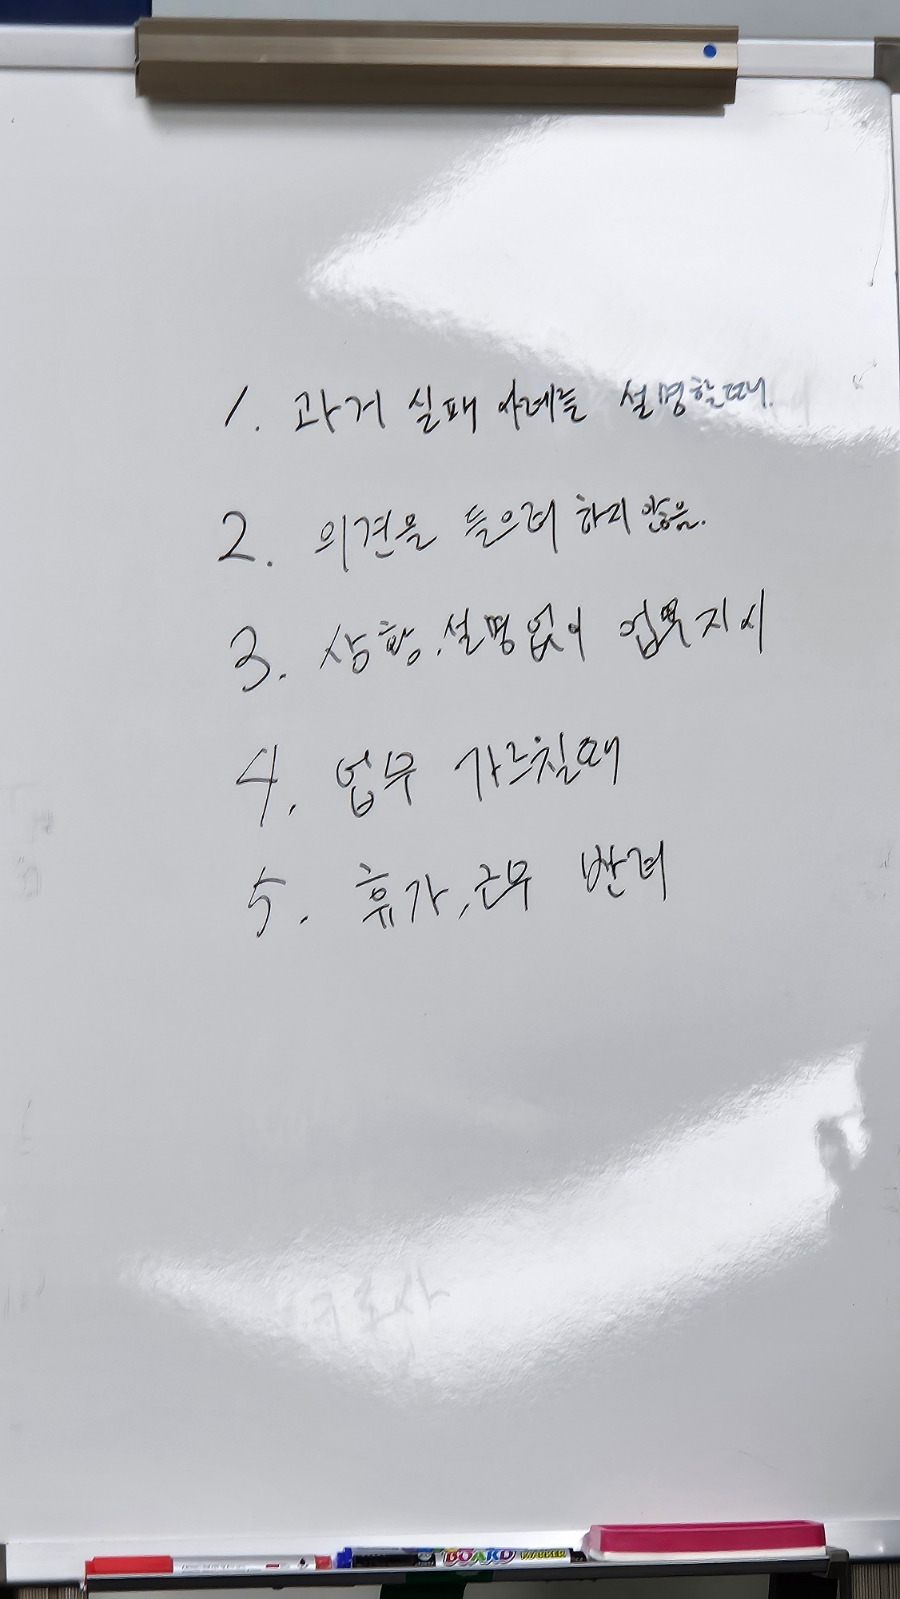 1. 과거 실패 사례를 설명할때.
2. 의견을 들으려 하지 않음.
3. 상황, 설명없이 업무지시
4. 업무 가르칠때
5. 휴가, 근무 반려
BOARD MARKER